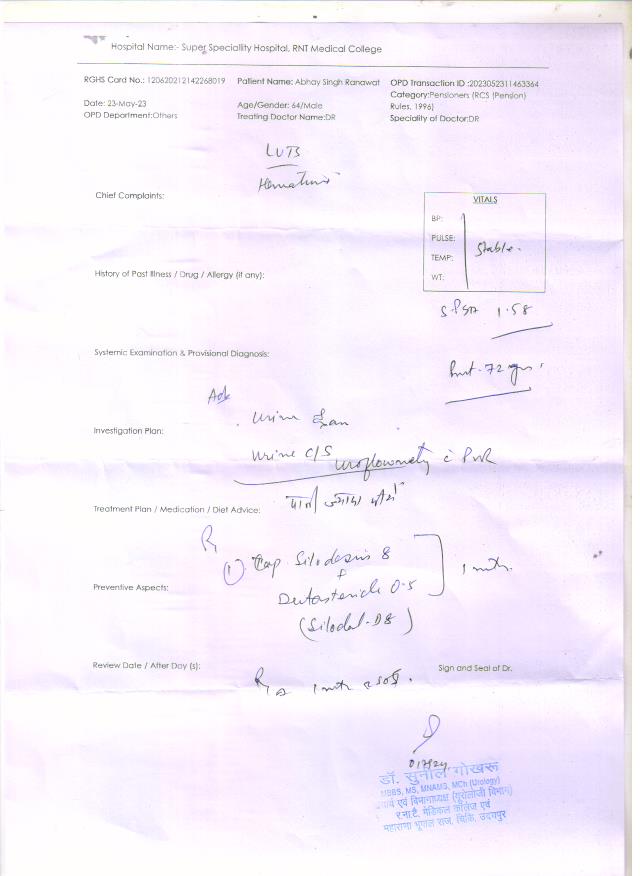 Hospital Name:- Super Speciallity Hospital, RNT Medical College
RGHS Card No.: 120620212142268019 Patient Name: Abhay Singh Ranawat OPD Transaction ID :2023052311463364
Category:Pensioners (RCS (Pension)
Date: 23-May-23 Age/Gender: 64/Male Rules, 1996)
OPD Department:Others Treating Doctor Name:DR Speciality of Doctor:DR
LUTS
Chief Complaints:
VITALS
BP:
PULSE:
Stable.
TEMP:
WT:
History of Past Illness / Drug / Allergy (if any):
S.PSA 1.58
Systemic Examination & Provisional Diagnosis:
Adv
Urine
Investigation Plan:
Urine C/S
Uroflowmetry c PVR
Treatment Plan / Medication / Diet Advice:
पानी ज्यादा पीयें
Rx
① Cap Silodosin 8
+
1 mth.
Preventive Aspects:
Dutasteride 0.5
(Silodal-D8)
Review Date / After Day (s): Sign and Seal of Dr.
डॉ. सुनील गोखरू
MBBS, MS, MNAMS, MCh (Urology)
एवं विभागाध्यक्ष (यूरोलॉजी विभाग)
र.ना.टै. मेडिकल कॉलेज एवं
महाराणा भूपाल राज. चिकि. उदयपुर